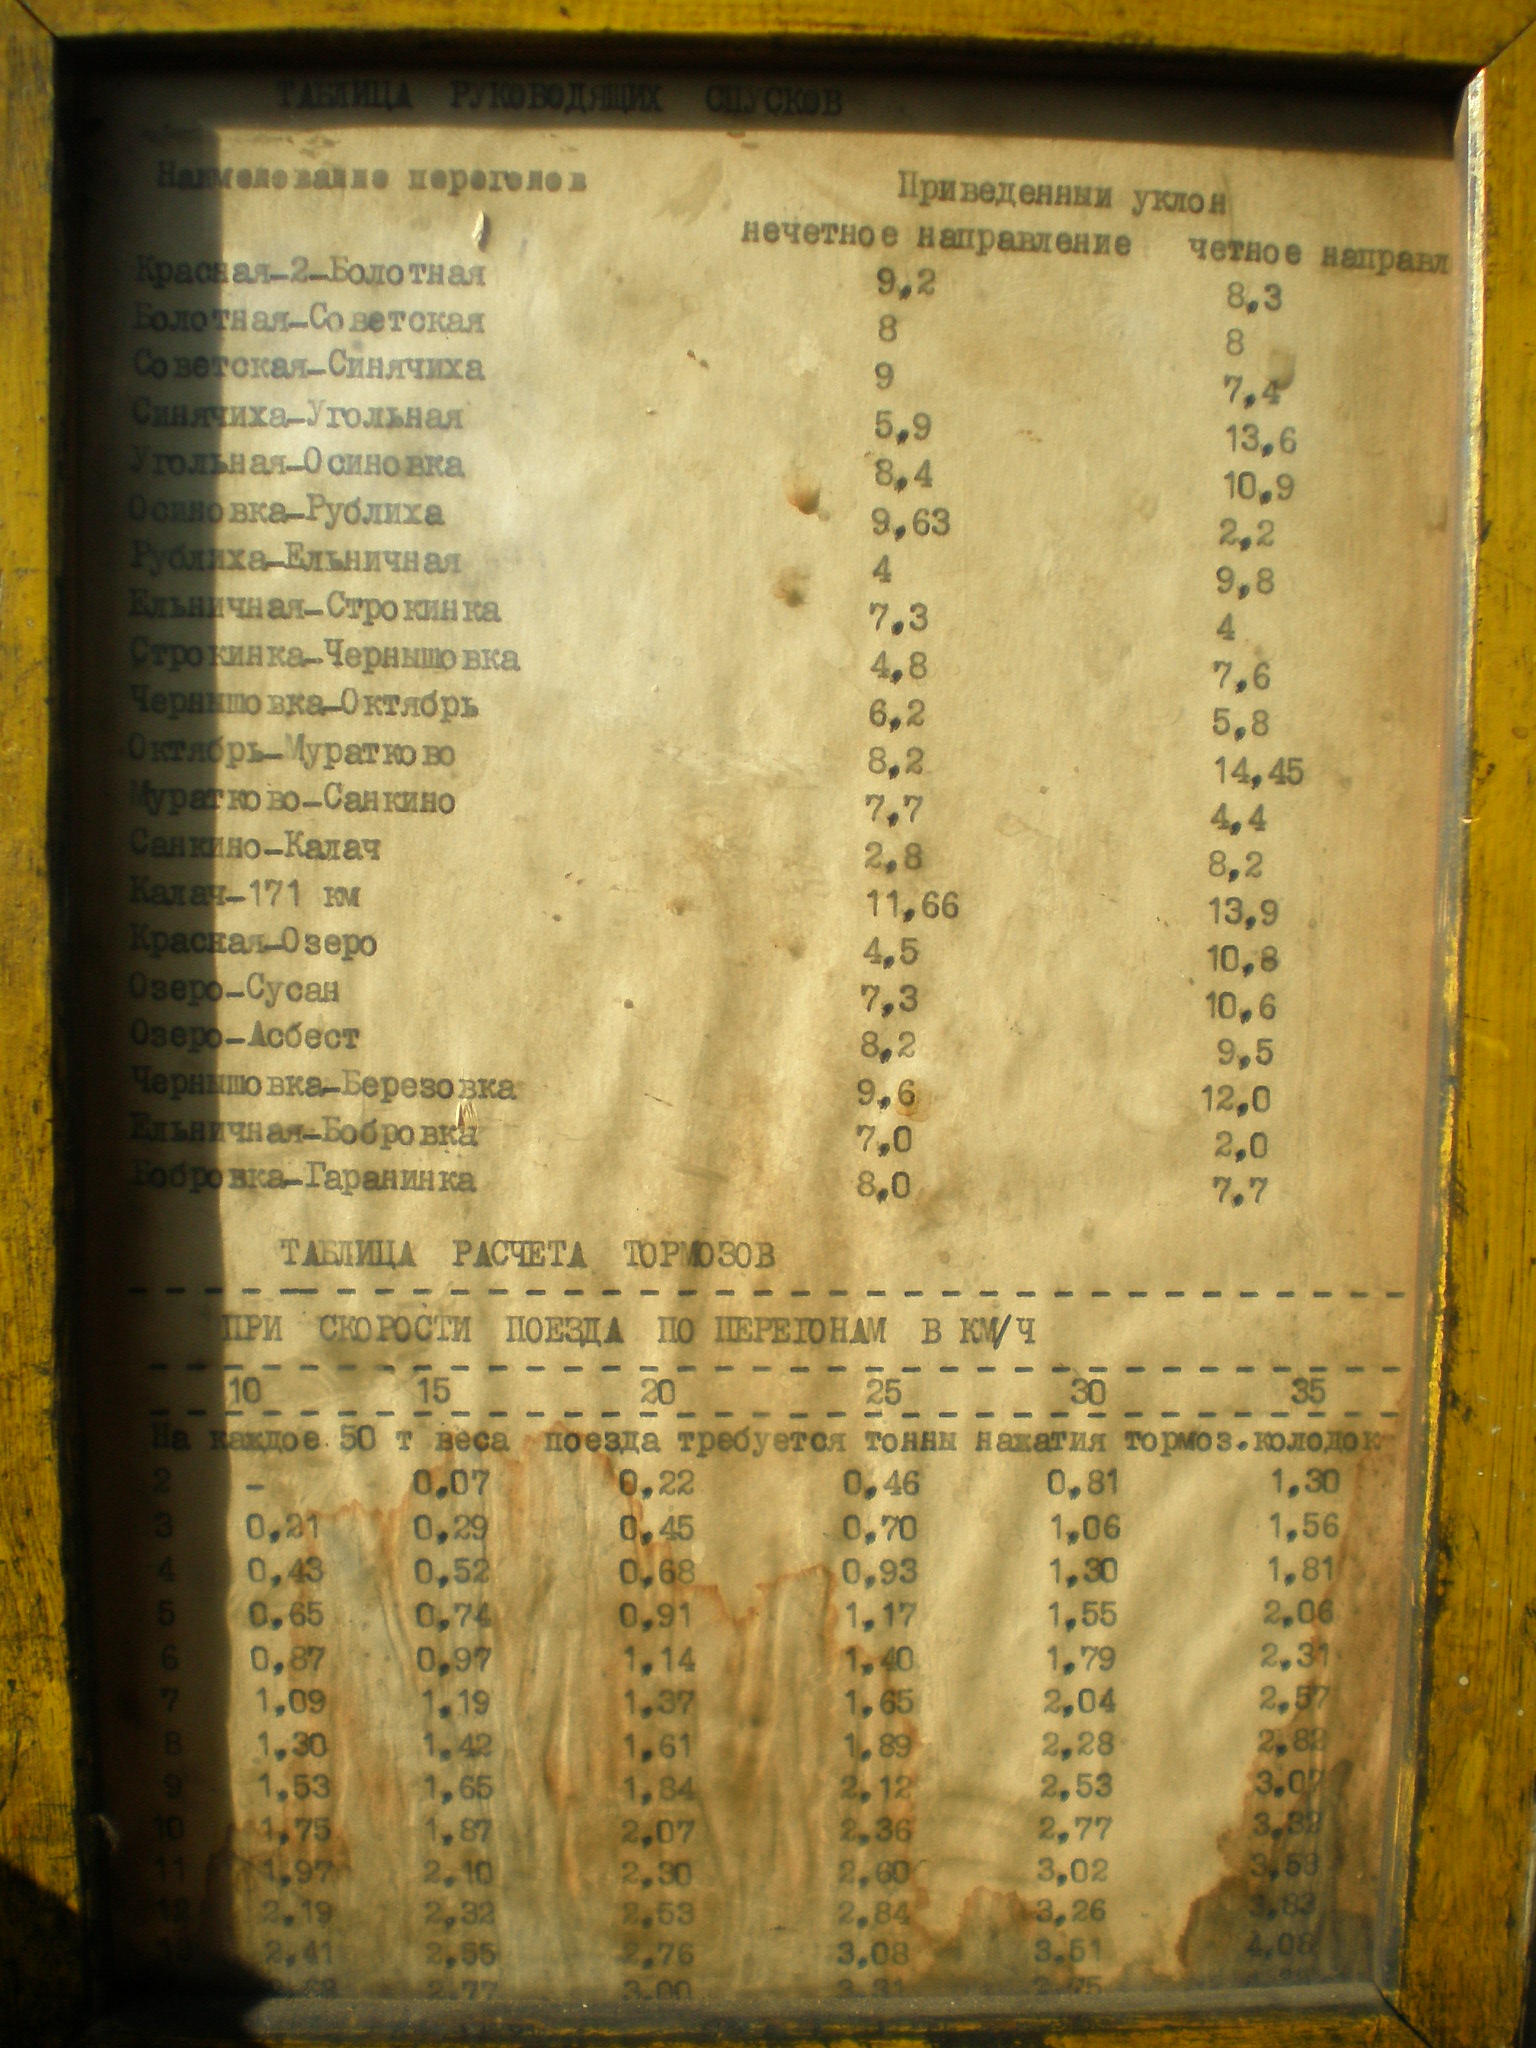 ТАБЛИЦА РУКОВОДЯЩИХ СПУСКОВ
Наименование перегонов Приведенный уклон
нечетное направление четное направл
Красная-2-Болотная 9,2 8,3
Болотная-Советская 8 8
Советская-Синячиха 9 7,4
Синячиха-Угольная 5,9 13,6
Угольная-Осиновка 8,4 10,9
Осиновка-Рублиха 9,63 2,2
Рублиха-Ельничная 4 9,8
Ельничная-Строкинка 7,3 4
Строкинка-Чернышовка 4,8 7,6
Чернышовка-Октябрь 6,2 5,8
Октябрь-Муратково 8,2 14,45
Муратково-Санкино 7,7 4,4
Санкино-Калач 2,8 8,2
Калач-171 км 11,66 13,9
Красная-Озеро 4,5 10,8
Озеро-Сусан 7,3 10,6
Озеро-Асбест 8,2 9,5
Чернышовка-Березовка 9,6 12,0
Ельничная-Бобровка 7,0 2,0
Бобровка-Гаранинка 8,0 7,7
ТАБЛИЦА РАСЧЕТА ТОРМОЗОВ
ПРИ СКОРОСТИ ПОЕЗДА ПО ПЕРЕГОНАМ В КМ/Ч
10 15 20 25 30 35
На каждое 50 т веса поезда требуется тонны нажатия тормоз.колодок
2 - 0,07 0,22 0,46 0,81 1,30
3 0,21 0,29 0,45 0,70 1,06 1,56
4 0,43 0,52 0,68 0,93 1,30 1,81
5 0,65 0,74 0,91 1,17 1,55 2,06
6 0,87 0,97 1,14 1,40 1,79 2,31
7 1,09 1,19 1,37 1,65 2,04 2,57
8 1,30 1,42 1,61 1,89 2,28 2,82
9 1,53 1,65 1,84 2,12 2,53 3,07
10 1,75 1,87 2,07 2,36 2,77 3,32
11 1,97 2,10 2,30 2,60 3,02 3,53
12 2,19 2,32 2,53 2,84 3,26 3,83
13 2,41 2,55 2,76 3,08 3,51 4,08
2,77 3,00 3,31